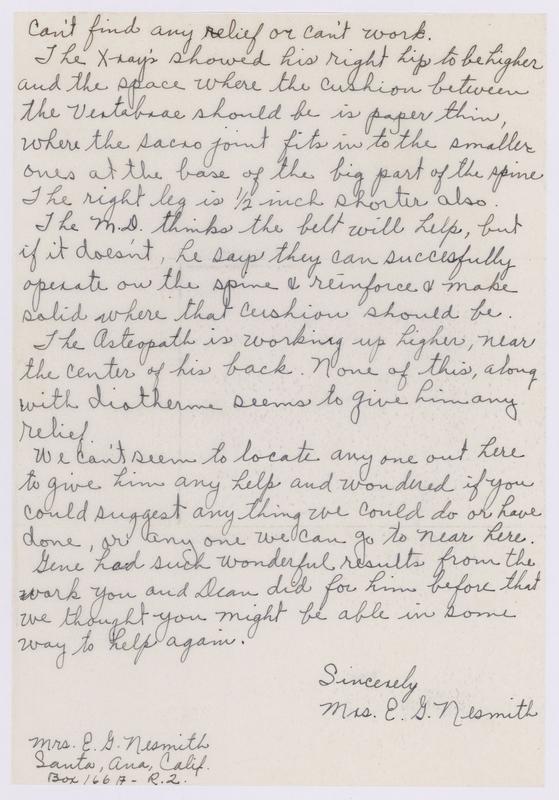 can't find any relief or can't work.
The X-rays showed his right hip to be higher
and the space where the cushion between
the Vertabrae should be is paper thin,
where the sacro joint fits in to the smaller
ones at the base of the big part of the spine
The right leg is 1/2 inch shorter also.
The M.D. thinks the belt will help, but
if it doesn't, he says they can succesfully
operate on the spine & reinforce & make
solid where that cushion should be.
The Asteopath is working up higher, near
the center of his back. None of this, along
with diotherme seems to give him any
relief.
We can't seem to locate any one out here
to give him any help and wondered if you
could suggest any thing we could do or have
done, or any one we can go to near here.
Gene had such wonderful results from the
work you and Dean did for him before that
we thought you might be able in some
way to help again.
Sincerely
Mrs. E. G. Nesmith
Mrs. E. G. Nesmith
Santa, Ana, Calif.
Box 166 A - R. 2.